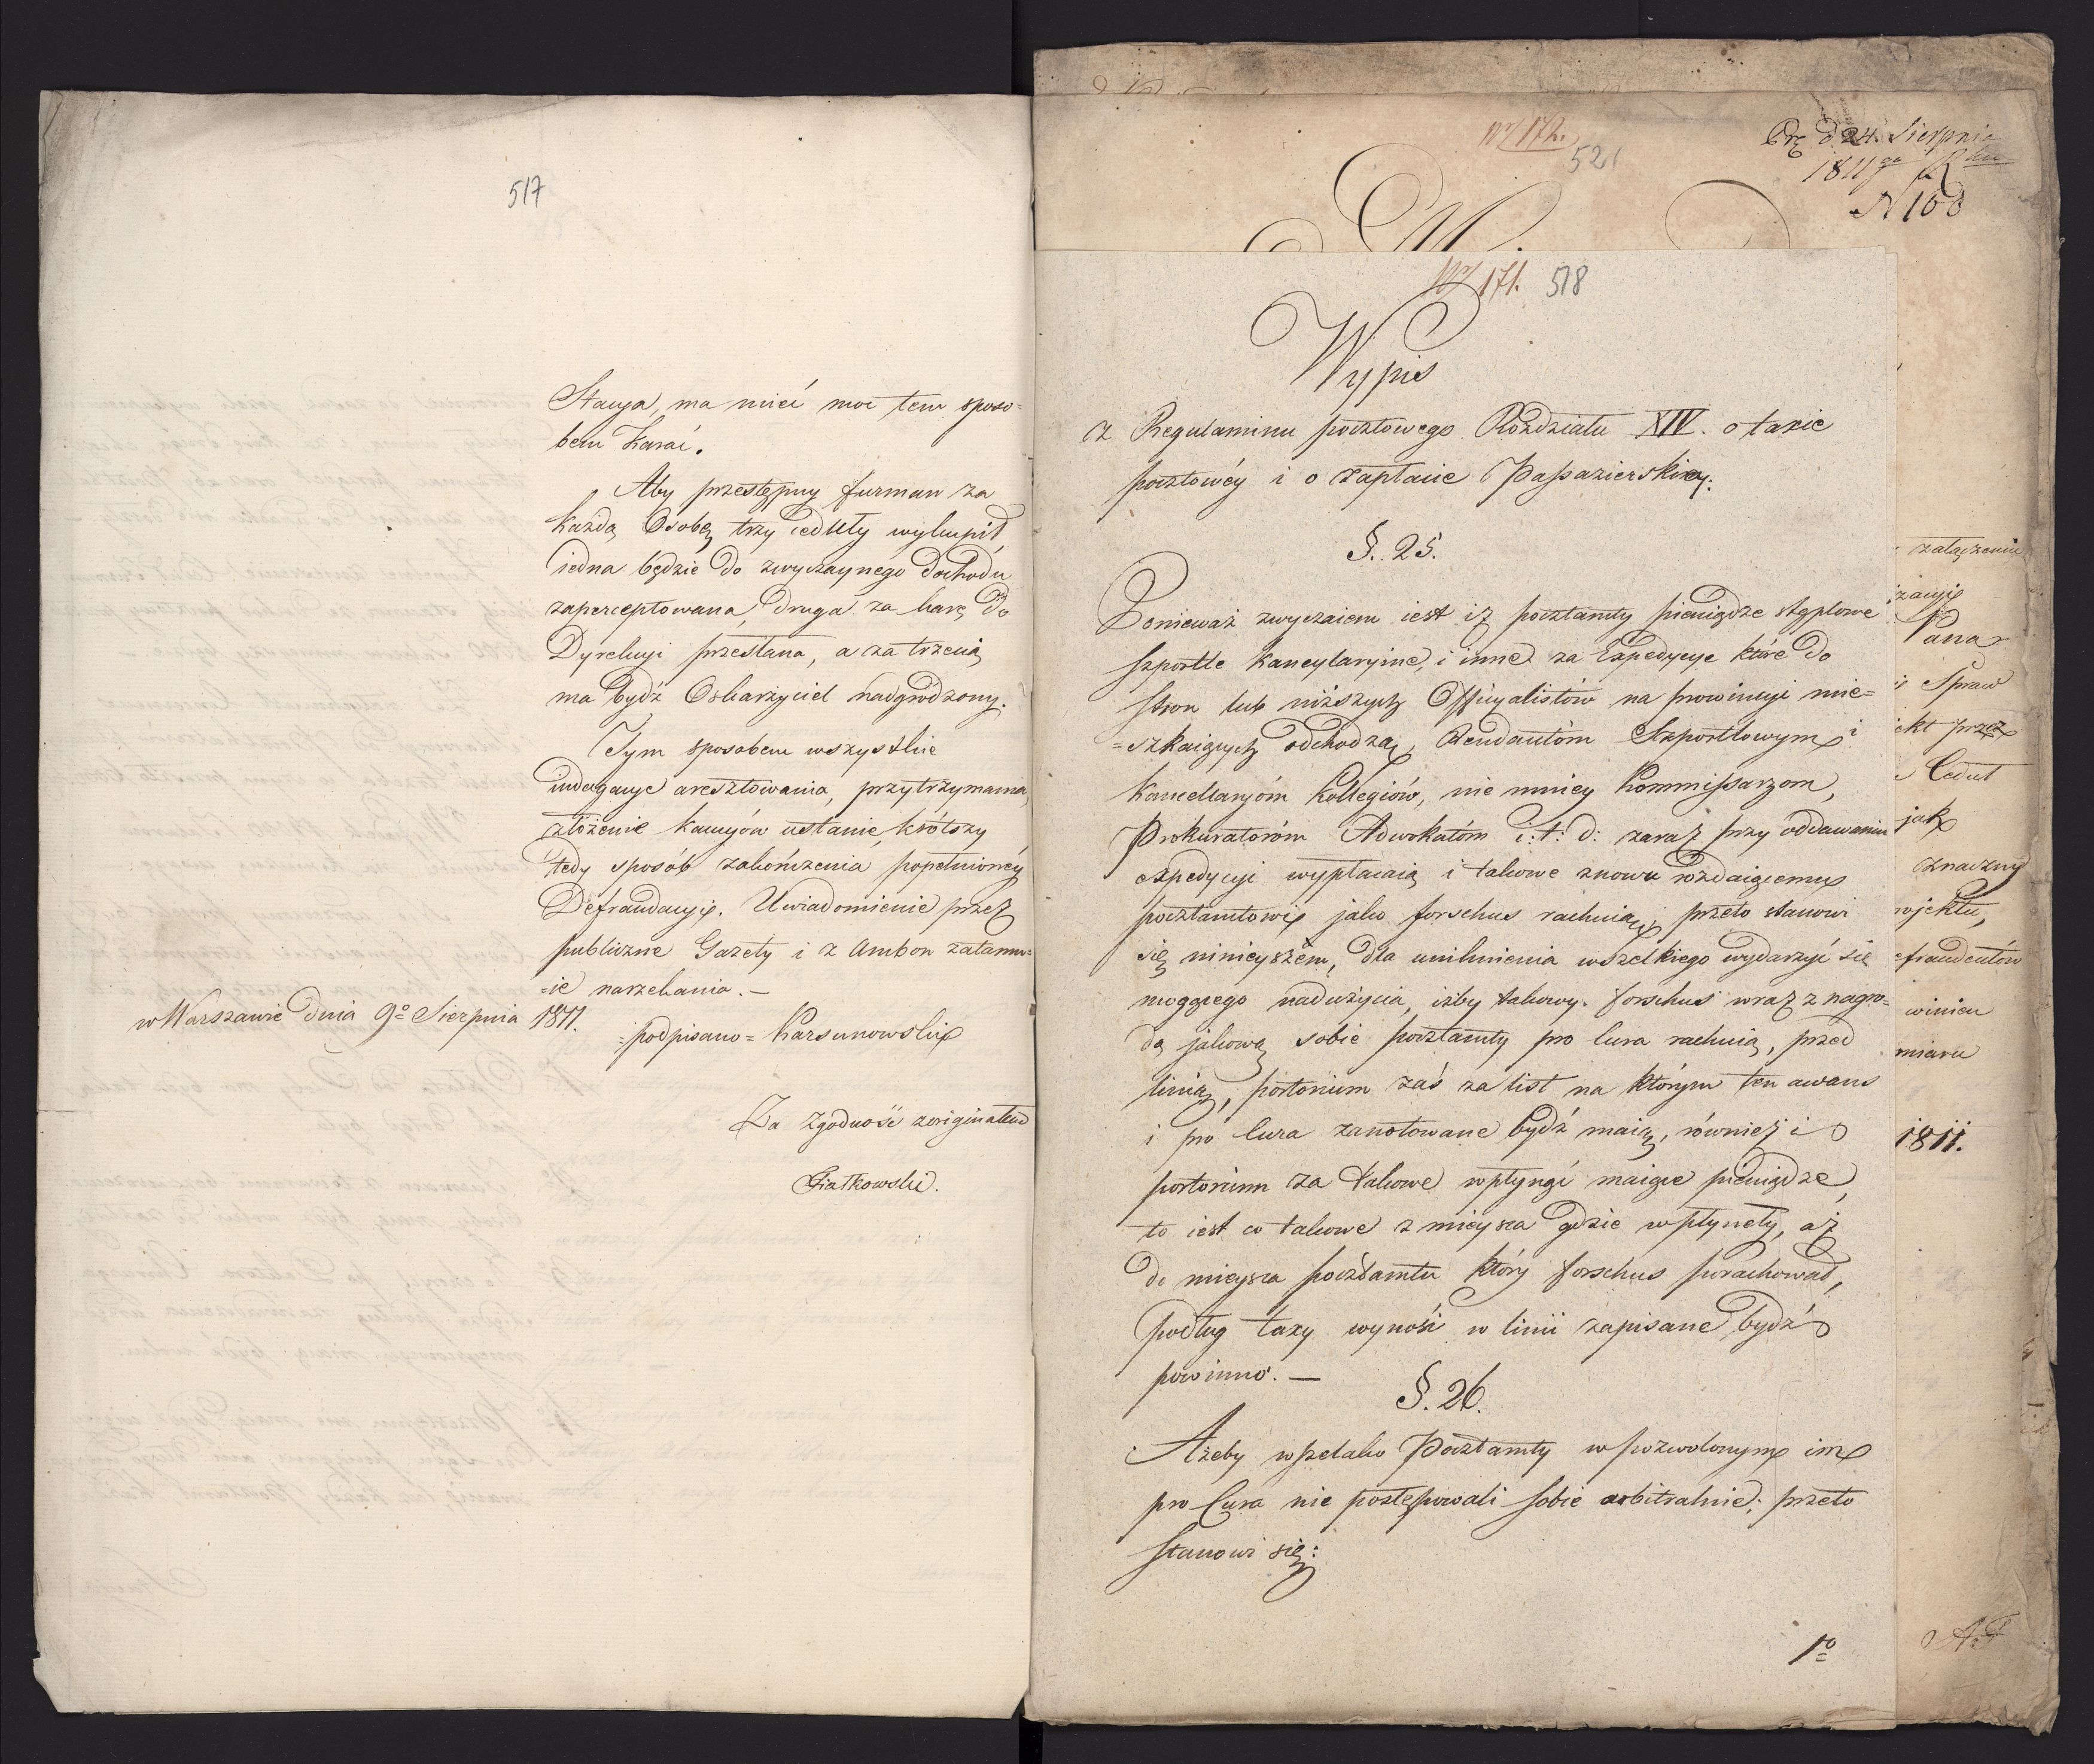 517
Stacya, ma mieć moc tem sposo=
bem karać.
Aby przestępny furman za
każdą Osobę trzy cedułły wykupił,
iedna będzie do zwyczaynego dochodu
zaperceptowana, druga za karę do
Dyrekcyi przesłana, a za trzecią
ma bydź Oskarżyciel nadgrodzony.
Tym sposobem wszystkie
indagacye aresztowania, przytrzymania,
złożenie kaucyów ustanie, krótszy
tedy sposób zakończenia popełnioney
Defraudacyi. Uwiadomienie przez
publiczne Gazety i z Ambon zatamu=
=ie narzekania. —
w Warszawie dnia 9º Sierpnia 1811.
=podpisano= Karsunowski
Za zgodność z originałem
Piatkowski.
Nº 172.
521
Prę d 24. Sierpnia
1811go Rku
N 168
Nº 171. 518
Wypis
z Regulaminu pocztowego Rozdziału XIV. o taxie
pocztowéy i o zapłacie Passazierskiey.
§. 25.
Ponieważ zwyczaiem iest iż pocztamty pieniądze stęplowe
szportle kancylaryine, i inne za Expedycye które do
stron lub niższych Officyalistów na prowincyi mie=
=szkaiących odchodzą, Rendantóm Szportlowym i
Kancellaryóm Kollegiów, nie mniey Kommissarzom,
Prokuratoróm Adwokatóm i: t: d: zaraz przy oddawaniu
expedycyi wypłacaią i takowe znowu rozdaiącemu
pocztamtowi jako forschus rachuią; przeto stanowi
się ninieyszém, dla uniknienia wszelkiego wydarzyć się
mogącego nadużycia, iżby takowy forschus wraz z nagro=
dą jakową sobie pocztamty pro cura rachuią, przed
linią, portorium zaś za list na którym ten awans
i pro Cura zanotowane bydź maią, również i
portorium za takowe wpłynąć maiące pieniądze,
to iest co takowe z mieysca gdzie wpłynęły, aż
do mieysca pocztamtu który forschus porachował,
podług taxy wynosi w linii zapisane bydź
powinno. —
§. 26.
Ażeby wszelako Pocztamty w pozwolonym im
pro Cura nie postępowali sobie arbitralnie; przeto
stanowi się:
1º
załączeniu
Pana
Spraw
przez
Ceduł
jak
znaczny
1811.